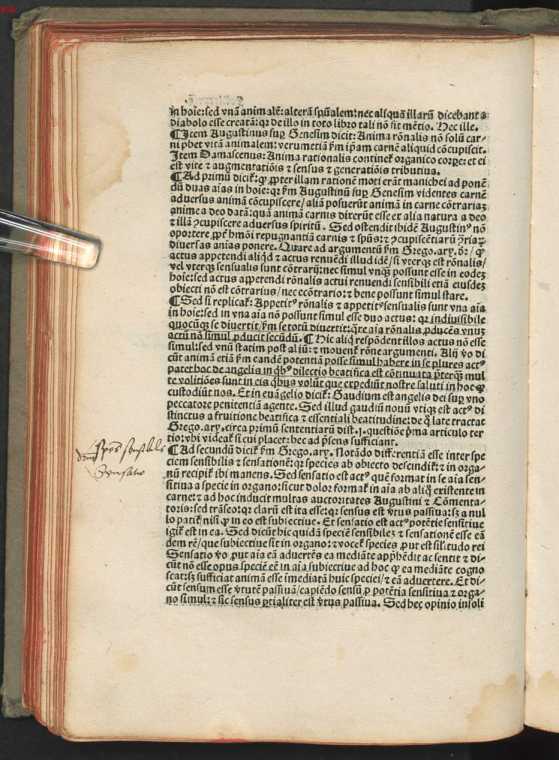 in hoīe: sed vnā animalē: alterā spūalem: nec aliquā illarū dicebant a
diabolo esse creatā: qꝛ de illo in toto libro tali nō fit mētio. Hec ille.
¶ Item Augustinus suꝑ Genesim dicit: Anima rōnalis nō solū car-
ni pbet vitā animalem: verumetiā ꝑm ipam carnē aliquid cōcupiscit.
Item Damascenus: Anima rationalis continet organico corꝑe: et ei
est vite ⁊ augmentatiōis ⁊ sensus ⁊ generatiōis tributiua.
¶ Ad primū dicit: ꝙ ꝓpter illam rationē moti erāt manichei ad ponē-
dū duas aīas in hoīe: qꝛ ẜm Augustinū suꝑ Genesim videntes carnē
aduersus animā cōcupiscere/ aliā posuerūt animā in carne cōtrariaꝫ
anime a deo datā: quā animā carnis dixerūt esse et alia natura a deo
⁊ illā ꝯcupiscere aduersus spiritū. Sed ostendit ibidē Augustinꝰ nō
oportere ꝓpter hmōi repugnantiā carnis ⁊ spūs: ⁊ ꝯcupiscētiarū ꝯriaꝝ
diuersas aīas ponere. Quare ad argumentū ẜm Grego. ary. dꝛ/ ꝙ
actus appetendi aliqd ⁊ actus renuēdi illud idē/ si vterqꝫ est rōnalis/
vel vterqꝫ sensualis sunt cōtrarij: nec simul vnqꝫ possunt esse in eodeꝫ
hoīe: sed actus appetendi rōnalis actui renuendi sensibili etiā eiusdeꝫ
obiecti nō est cōtrarius/ nec ecōtrario: ⁊ bene possunt simul stare.
¶ Sed si replicat: Appetitꝰ rōnalis ⁊ appetitꝰ sensualis sunt vna aīa
in hoīe: sed in vna aīa nō possunt simul esse duo actus: qꝛ indiuisibile
quocūqꝫ se diuertit/ ẜm se totū diuertit: qꝛe aīa rōnalis ꝓducēs vnuꝫ
actū nō simul ꝓducit secūdū. ¶ Hic aliq̄ respōdent illos actus nō esse
simul: sed vnū statim post aliū: ⁊ mouent rōne argumenti. Alij vō di-
cūt animā etiā ẜm eandē potentiā posse simul habere in se plures actꝰ
patet hoc de angelis in qbꝰ dilectio beatifica est cōtinuata ꝓterqꝫ mul
te volitiōes sunt in eis qbus volūt que expediūt nostre saluti in hoc ꝙ
custodiūt nos. Et in euāgelio dicit: Gaudium est angelis dei suꝑ vno
peccatore penitentiā agente. Sed illud gaudiū nouū vtiqꝫ est actꝰ di
stinctus a fruitione beatifica ⁊ essentiali beatitudine: de q̄ late tractat
Grego. ary. circa primū sententiarū dist. j. questiōe pma articulo ter
tio: vbi videat si cui placet: hec ad psens sufficiant.
¶ Ad secundū dicit ẜm Grego. ary. Notādo differentiā esse inter spe
ciem sensibilis ⁊ sensationē: qꝛ species ab obiecto descindit: ⁊ in orga-
nū recipit ibi manens. Sed sensatio est actꝰ quē format in se aīa sen-
sitiua a specie in organo: sicut dolor format in aīa ab aliq̄ existente in
carne: ⁊ ad hoc inducit multas auctoritates Augustini ⁊ Cōmenta-
toris: sed trāseo: qꝛ clarū est ita esse: qꝛ sensus est ꝟtus passiua: sꝫ a nul
lo patit nisi ꝙ in eo est subiectiue. Et sensatio est actꝰ potētie sensitiue
igit est in ea. Sed dicūt hic quidā speciē sensibileꝫ ⁊ sensationē esse eā
dem rē/ que subiectiue sit in organo: ⁊ vocet species ꝓut est silitudo rei
Sensatio vō ꝓut aīa eā aduertēs ea mediāte apphēdit ac sentit ⁊ di-
cūt nō esse opus speciē eē in aīa subiectiue ad hoc ꝙ ea mediāte cogno
scat: sꝫ sufficiat animā esse īmediatā huic speciei/ ⁊ eā aduertere. Et di-
cūt sensum esse ꝟtutē passiuā/ capiēdo sensū ꝓ potētia sensitiua ⁊ orga-
no simul: ⁊ sic sensus ꝑtialiter est ꝟtus passiua. Sed hec opinio insoli